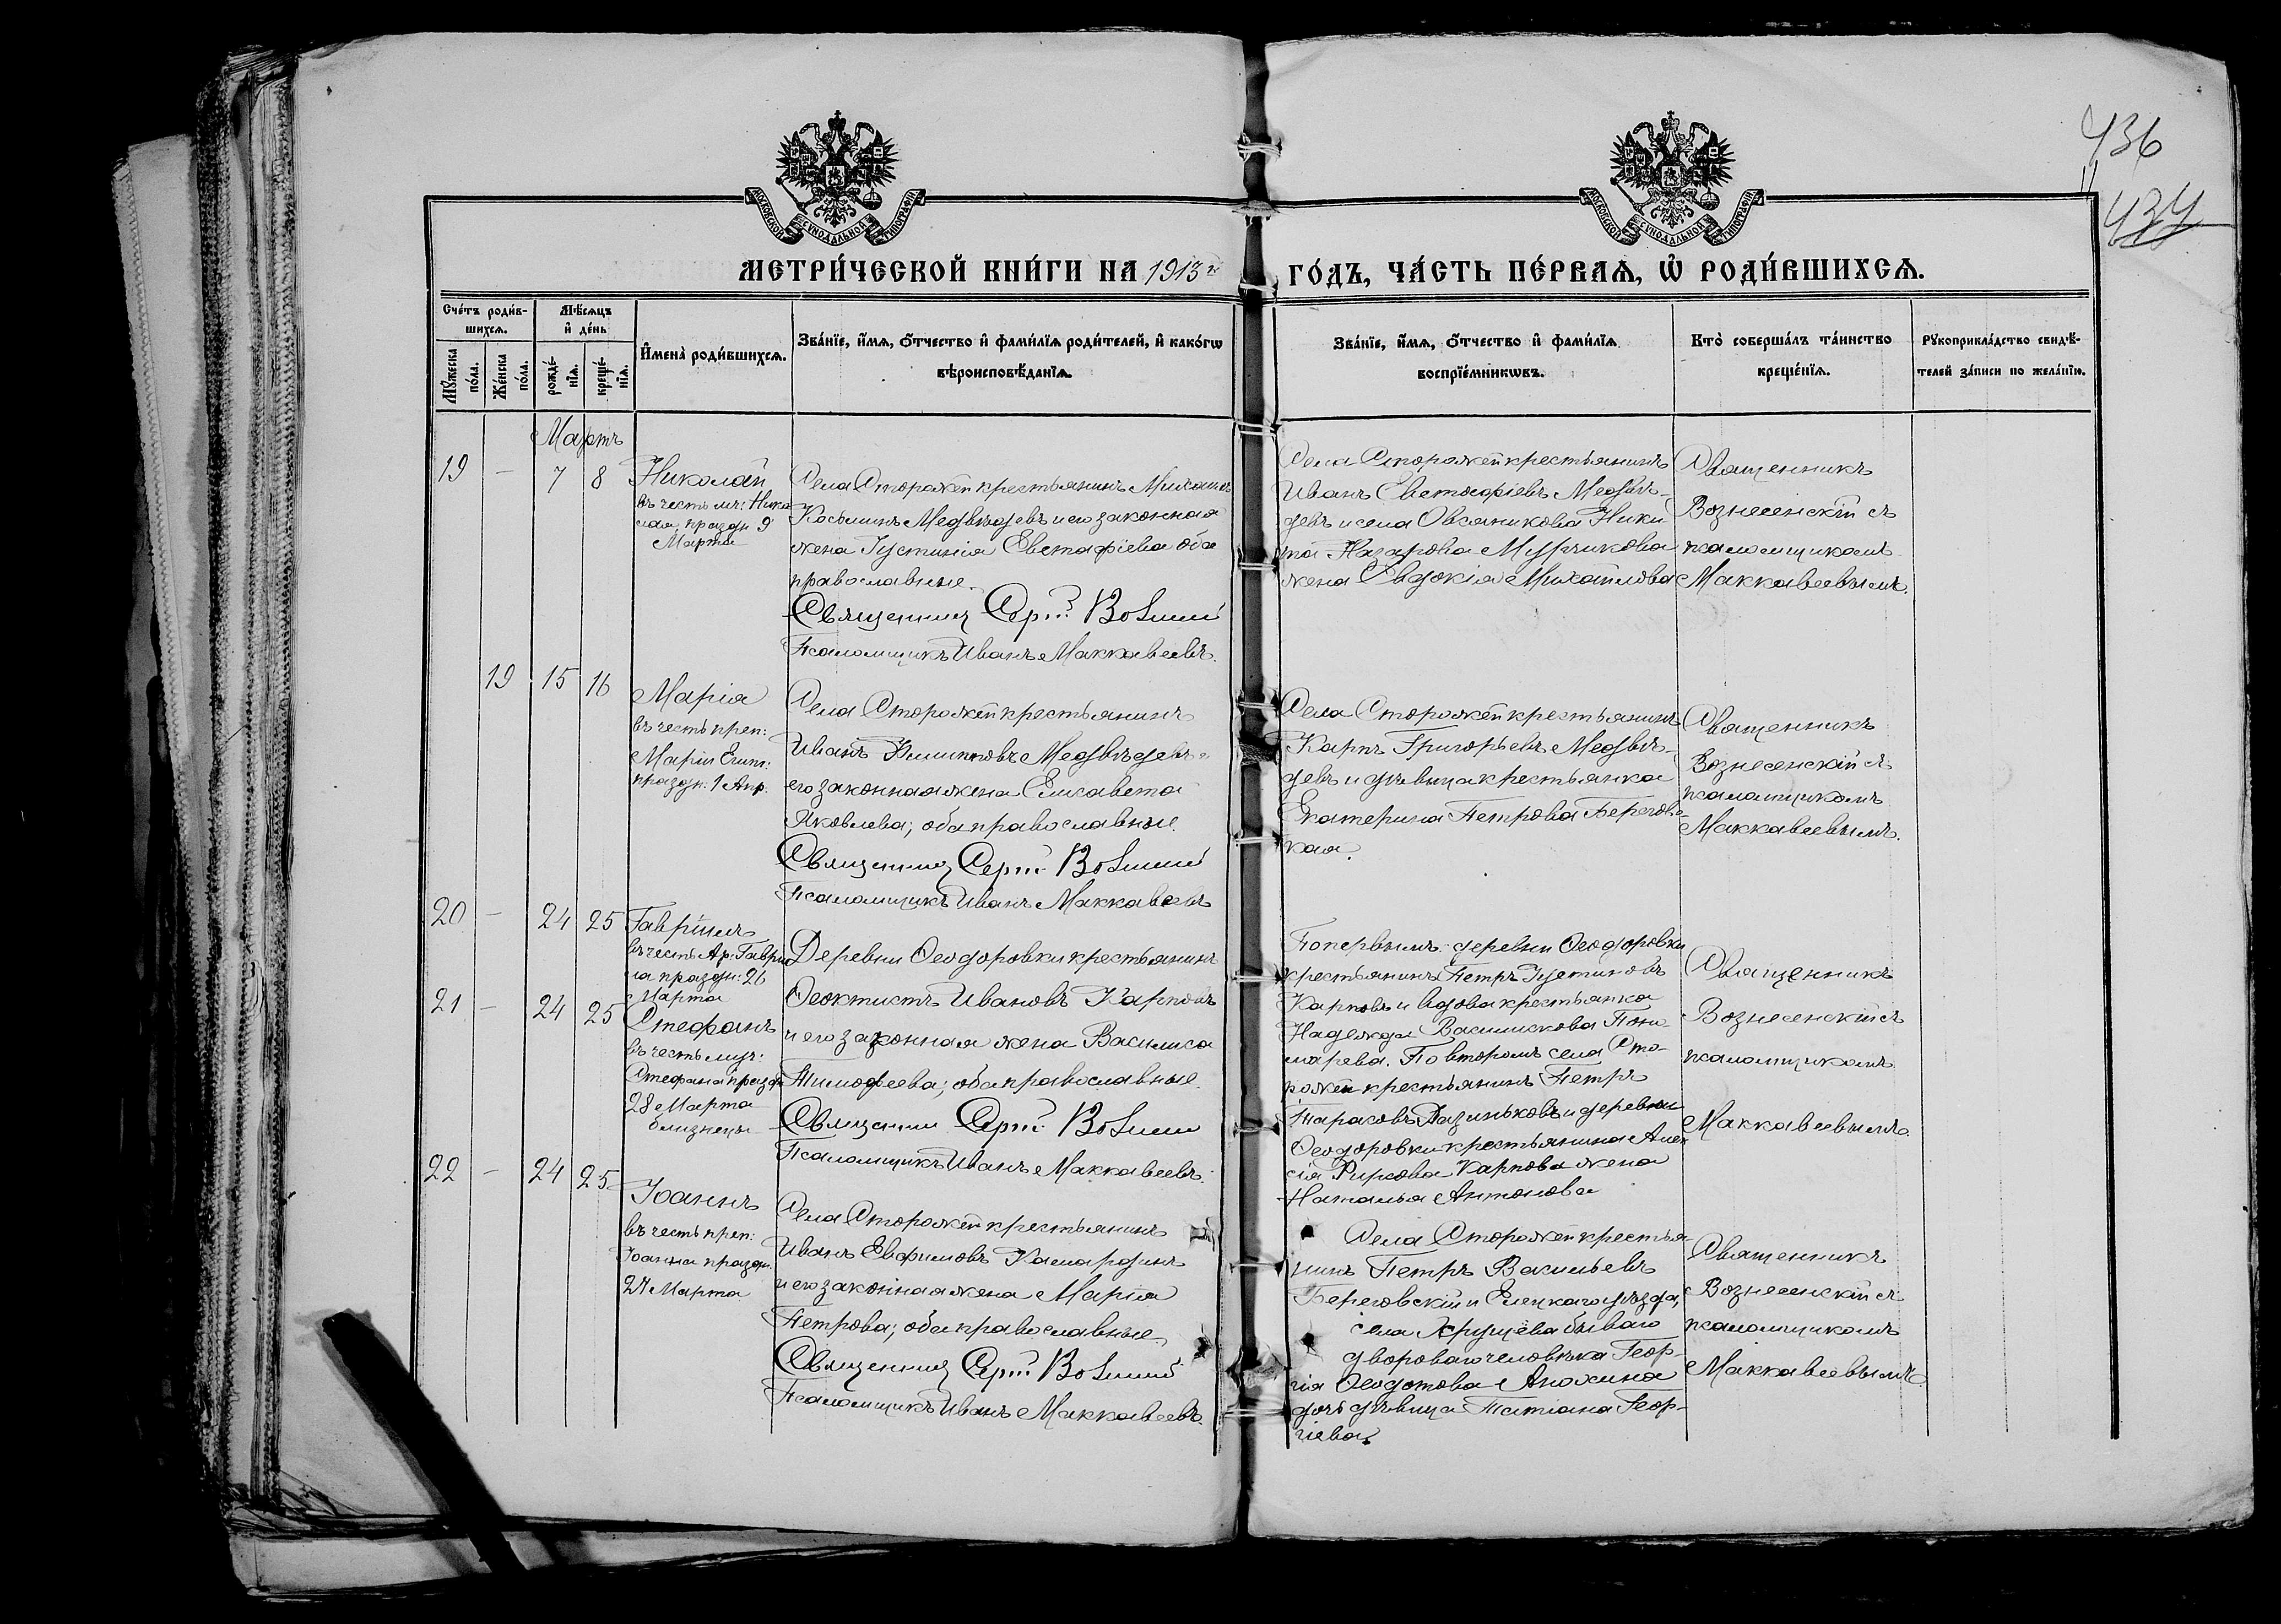 436
434
МОСКОВСКОЙ СѴНОДАЛЬНОЙ ТИПОГРАФІИ
МОСКОВСКОЙ СѴНОДАЛЬНОЙ ТИПОГРАФІИ
МЕТРИ́ЧЕСКОЙ КНИ́ГИ НА 1913й
ГО́ДЪ, ЧА́СТЬ ПЕ́РВАѦ, Ѡ҆ РОДИ́ВШИХСѦ.
Сче́тъ роди́в-
шихсѧ.
Мꙋ́жеска по́ла.
Же́нска по́ла.
Мѣ́сѧцъ
и҆ де́нь
рожде́-
нїѧ.
креще́-
нїѧ.
И҆мена̀ роди́вшихсѧ.
Зва́нїе, и҆́мѧ, ѻ҆́тчество и҆ фами́лїѧ роди́телей, и҆ како́гѡ
вѣроисповѣ́данїѧ.
Зва́нїе, и҆́мѧ, ѻ҆́тчество и҆ фами́лїѧ
воспрїе́мникѡвъ.
Кто̀ соверша́лъ та́инство
креще́нїѧ.
Рꙋкоприкла́дство свидѣ́-
телей за́писи по жела́нїю.
Мартъ
19 – 7 8
Николай
въ честь мч: Нико
лая, праздн 9
Марта
Села Сторожей крестьянинъ Михаилъ
Косьминъ Медвѣдевъ и его законная
жена Іустинія Евстафіева оба
православные.
Священникъ Серг. Возн
Псаломщикъ Иванъ Маккавеевъ.
Села Сторожей крестьянинъ
Иванъ Евстафіевъ Медвѣ-
девъ и села Овсяникова Ники
та Назарова жена Евдокія Михайлова
Священникъ
Вознесенскій съ
псаломщикомъ
Маккавеевымъ.
19 15 16
Марія
въ честь преп:
Маріи Егип:
праздн: 1 Апр.
Села Сторожей крестьянинъ
Иванъ Филипповъ Медвѣдевъ и
его законная жена Елисавета
Яковлева; оба православные.
Священникъ Серг. Возн
Псаломщикъ Иванъ Маккавеевъ
Села Сторожей крестьянинъ
Карпъ Григорьевъ Медвѣ-
девъ и дѣвица крестьянка
Екатерина Петрова Береговс-
кая.
Священникъ
Вознесенскій съ
псаломщикомъ
Маккавеевымъ.
20 – 24 25
Гавріилъ
въ честь Ар: Гаврі
ла праздн: 26
Марта
21 – 24 25
Стефанъ
въ честь муч:
Стефана праздн
28 Марта
близнецы
Деревни Ѳеодоровки крестьянинъ
Ѳеоктистъ Ивановъ Карповъ
и его законная жена Василиса
Тимоѳеева; оба православные.
Священникъ Серг. Возн
Псаломщикъ Иванъ Маккавеевъ.
По первымъ деревни Ѳеодоровки
крестьянинъ Петръ Іустиновъ
Карповъ и вдова крестьянка
Надежда Понo-
марева. По вторымъ села Сто-
рожей крестьянинъ Петръ
Тарасовъ и деревни
Ѳеодоровки крестьянина Алек
сія Карпова жена
Наталья Антонова
Священникъ
Вознесенскій съ
псаломщикомъ
Маккавеевымъ.
22 – 24 25
Іоаннъ
въ честь преп:
Іоанна праздн.
27 Марта
Села Сторожей крестьянинъ
Иванъ Евфимовъ Камардинъ
и его законная жена Марія
Петрова; оба православные.
Священникъ Серг. Возн
Псаломщикъ Иванъ Маккавеевъ.
Села Сторожей крестья
нинъ Петръ Васильевъ
Береговскій и Елецкаго уѣзда,
села Хрущева бывшаго
двороваго человѣка Геор-
гія Ѳеодотова Анохина
дочь дѣвица Татіана Геор-
гіева.
Священникъ
Вознесенскій съ
псаломщикомъ
Маккавеевымъ.